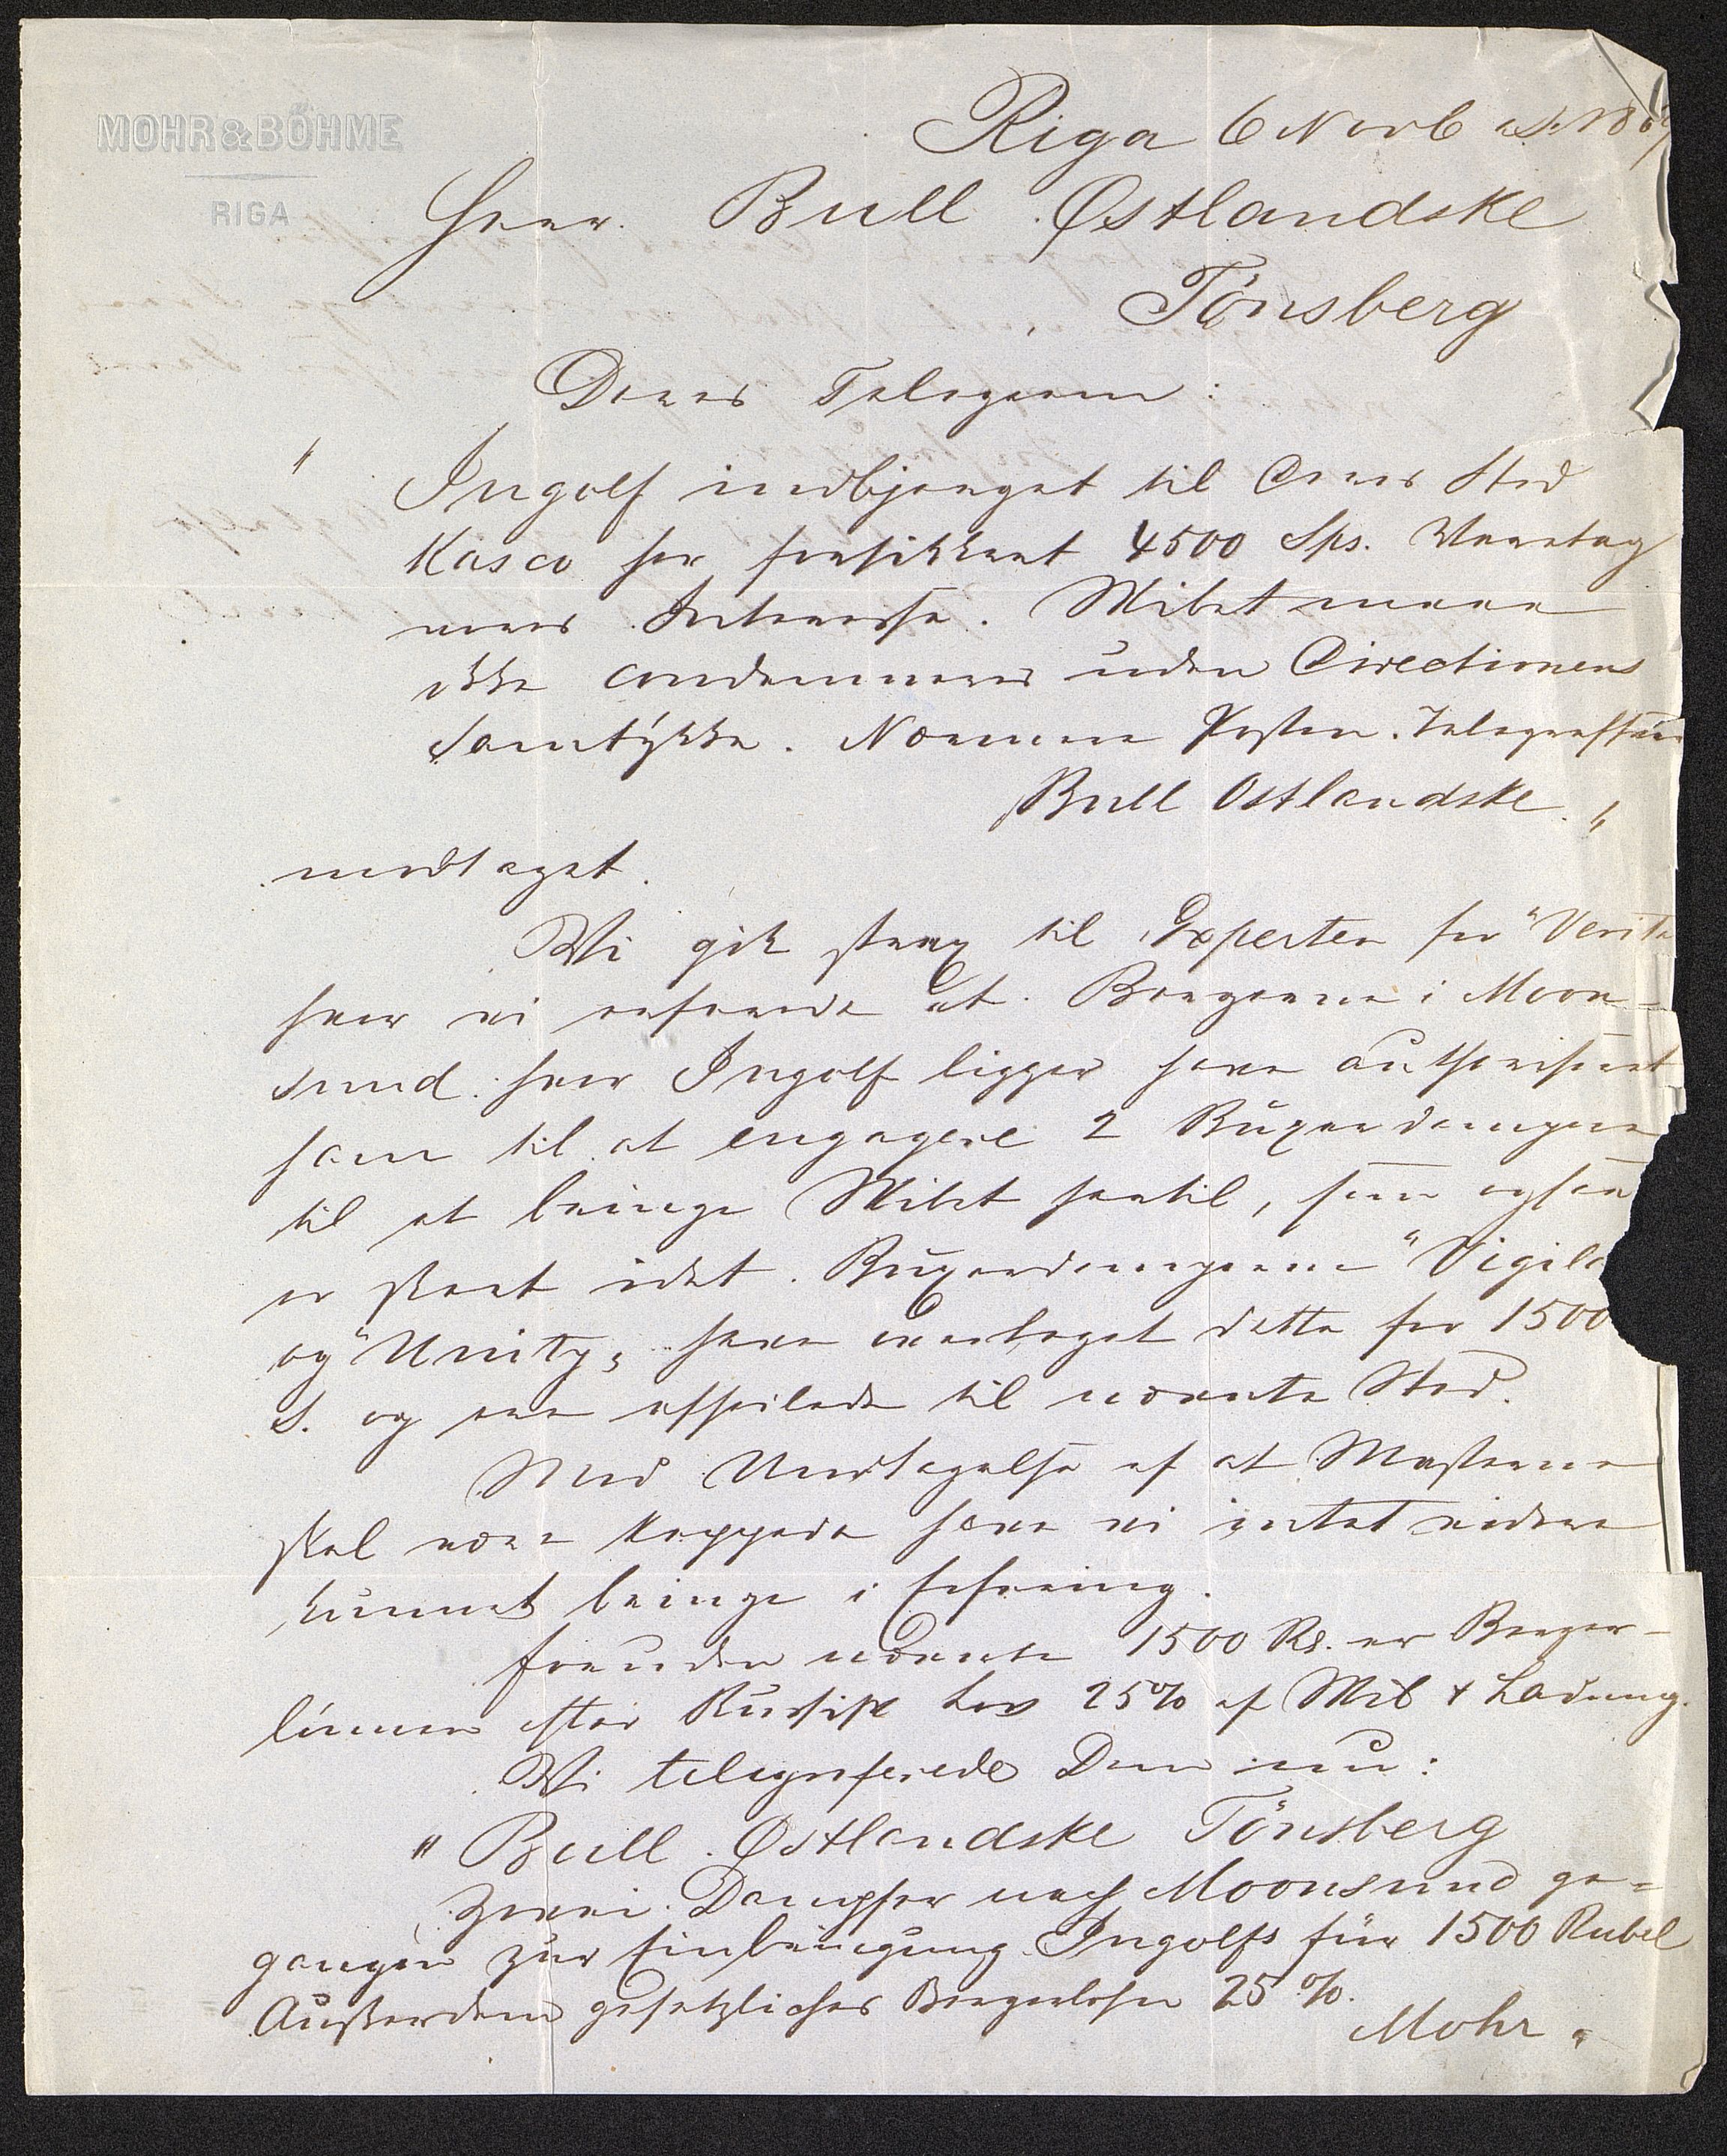 MOHR & BÖHME
RIGA
Riga 6 Novb
Herr. Bull Østlandske
Tönsberg
Deres Telegram:
" Ingolf indbjerget til Deres Sted
Kasco her forsikkret 4500 Sps. Varetag
vores Interesse. Skibet maae
ikke condemneres uden Directionens
Samtykke. Nærmere Posten.
Bull Ostlandske "
modtaget.
Vi gik strax til Experten for "Verita
hvor vi erfarede at Bergerne i Moon-
sund hvor Ingolf ligger have authoriseret
ham til at engagere 2 Buxeerdampere
til at bringe Skibet hertil, som ogsaa
er skeet idet Buxeerdamperne "Vigila
og "Unity" have overtaget dette for 1500
S. og ere afseilede til nævnte Sted.
Med Undtagelse af at Masterne
skal være kappede have vi intet videre
kunnet bringe i Erfaring.
Foruden nævnte 1500 Rs. er Berger-
lönnen efter Russisk Lov 25% af Skib & Ladning.
Vi telegraferede Dem nu:
" Bull Østlandske Tönsberg
Zwei Dampfer nach Moonsund ge=
gangen zur Einbringung Ingolfs für 1500 Rubel
Außerdem gesetzlicher Bergerlohn 25%.
Mohr "